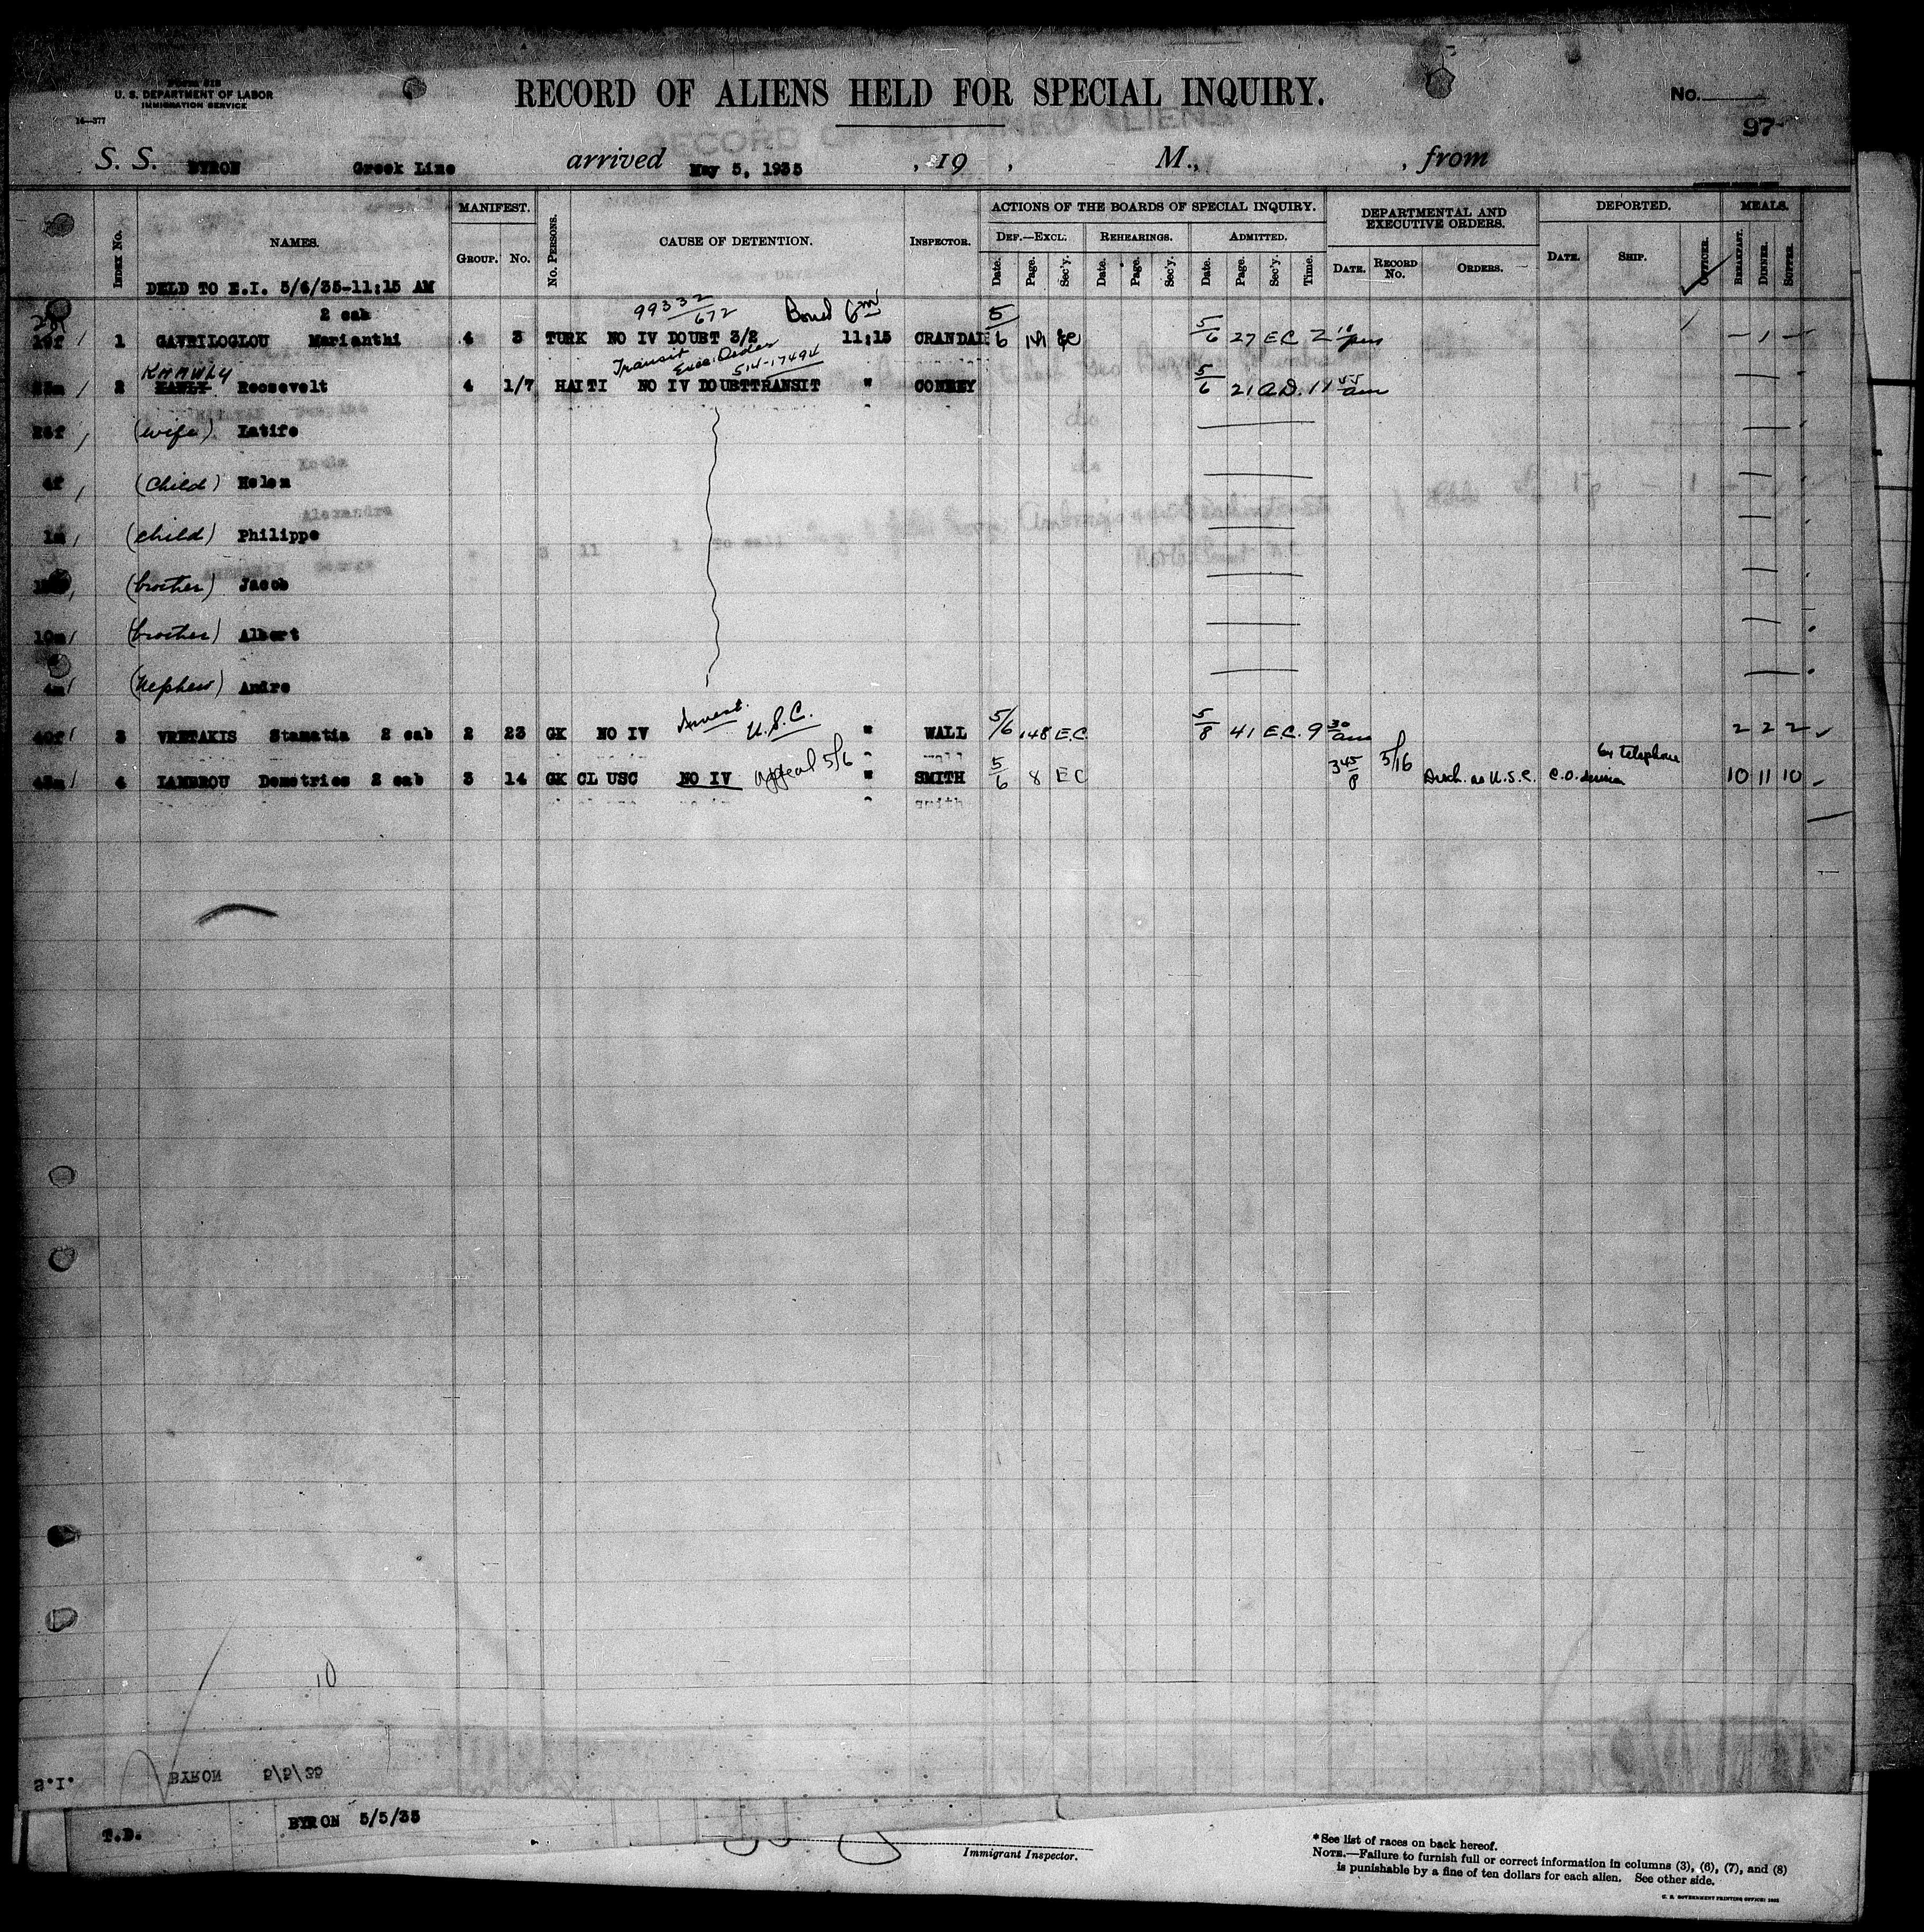 Form 218
U. S. DEPARTMENT OF LABOR
IMMIGRATION SERVICE
14—377
RECORD OF ALIENS HELD FOR SPECIAL INQUIRY.
No.
97
S. S. BYRON Greek Line arrived May 5, 1935 , 19 , M., , from
INDEX No. NAMES. MANIFEST. GROUP. No. No. PERSONS. CAUSE OF DETENTION. INSPECTOR. ACTIONS OF THE BOARDS OF SPECIAL INQUIRY. DEF.—EXCL. Date. Page. Sec'y. REHEARINGS. Date. Page. Sec'y. ADMITTED. Date. Page. Sec'y. Time. DEPARTMENTAL AND EXECUTIVE ORDERS. DATE. RECORD No. ORDERS. DEPORTED. DATE. SHIP. OFFICER. MEALS. BREAKFAST. DINNER. SUPPER.
DELD TO E.I. 5/6/35-11:15 AM
2 cab 99332/672 Bond 6m
1 GAVRILOGLOU Marianthi 4 3 TURK NO IV DOUBT 3/2 11:15 CRANDAL 5/6 5/6 27 EC 2 10 pm — 1 —
KHAWLY Transit Exec. Order 514-17494
2 Roosevelt 4 1/7 HAITI NO IV DOUBT TRANSIT " CONREY 5/6 21 A.D. 11 45 am
(wife) Latife
4f (child) Helen
1m (child) Philippe
(brother) Jacob
10m (brother) Albert
4m (Nephew) Andre
40f 3 VRETAKIS Stamatia 2 cab 2 23 GK NO IV U.S.C. " WALL 5/6 148 E.C. 5/8 41 E.C. 9 30 am 2 2 2
by telephone
4 LAMBROU Demetrios 2 cab 3 14 GK CL USC NO IV appeal 5/6 " SMITH 5/6 8 EC 345 P 5/16 Disch. as U.S.C. C.O. 10 11 10
10
S.I. BYRON 5/5/35
T.D. BYRON 5/5/35
Immigrant Inspector.
*See list of races on back hereof.
NOTE.—Failure to furnish full or correct information in columns (3), (6), (7), and (8)
is punishable by a fine of ten dollars for each alien. See other side.
U. S. GOVERNMENT PRINTING OFFICE: